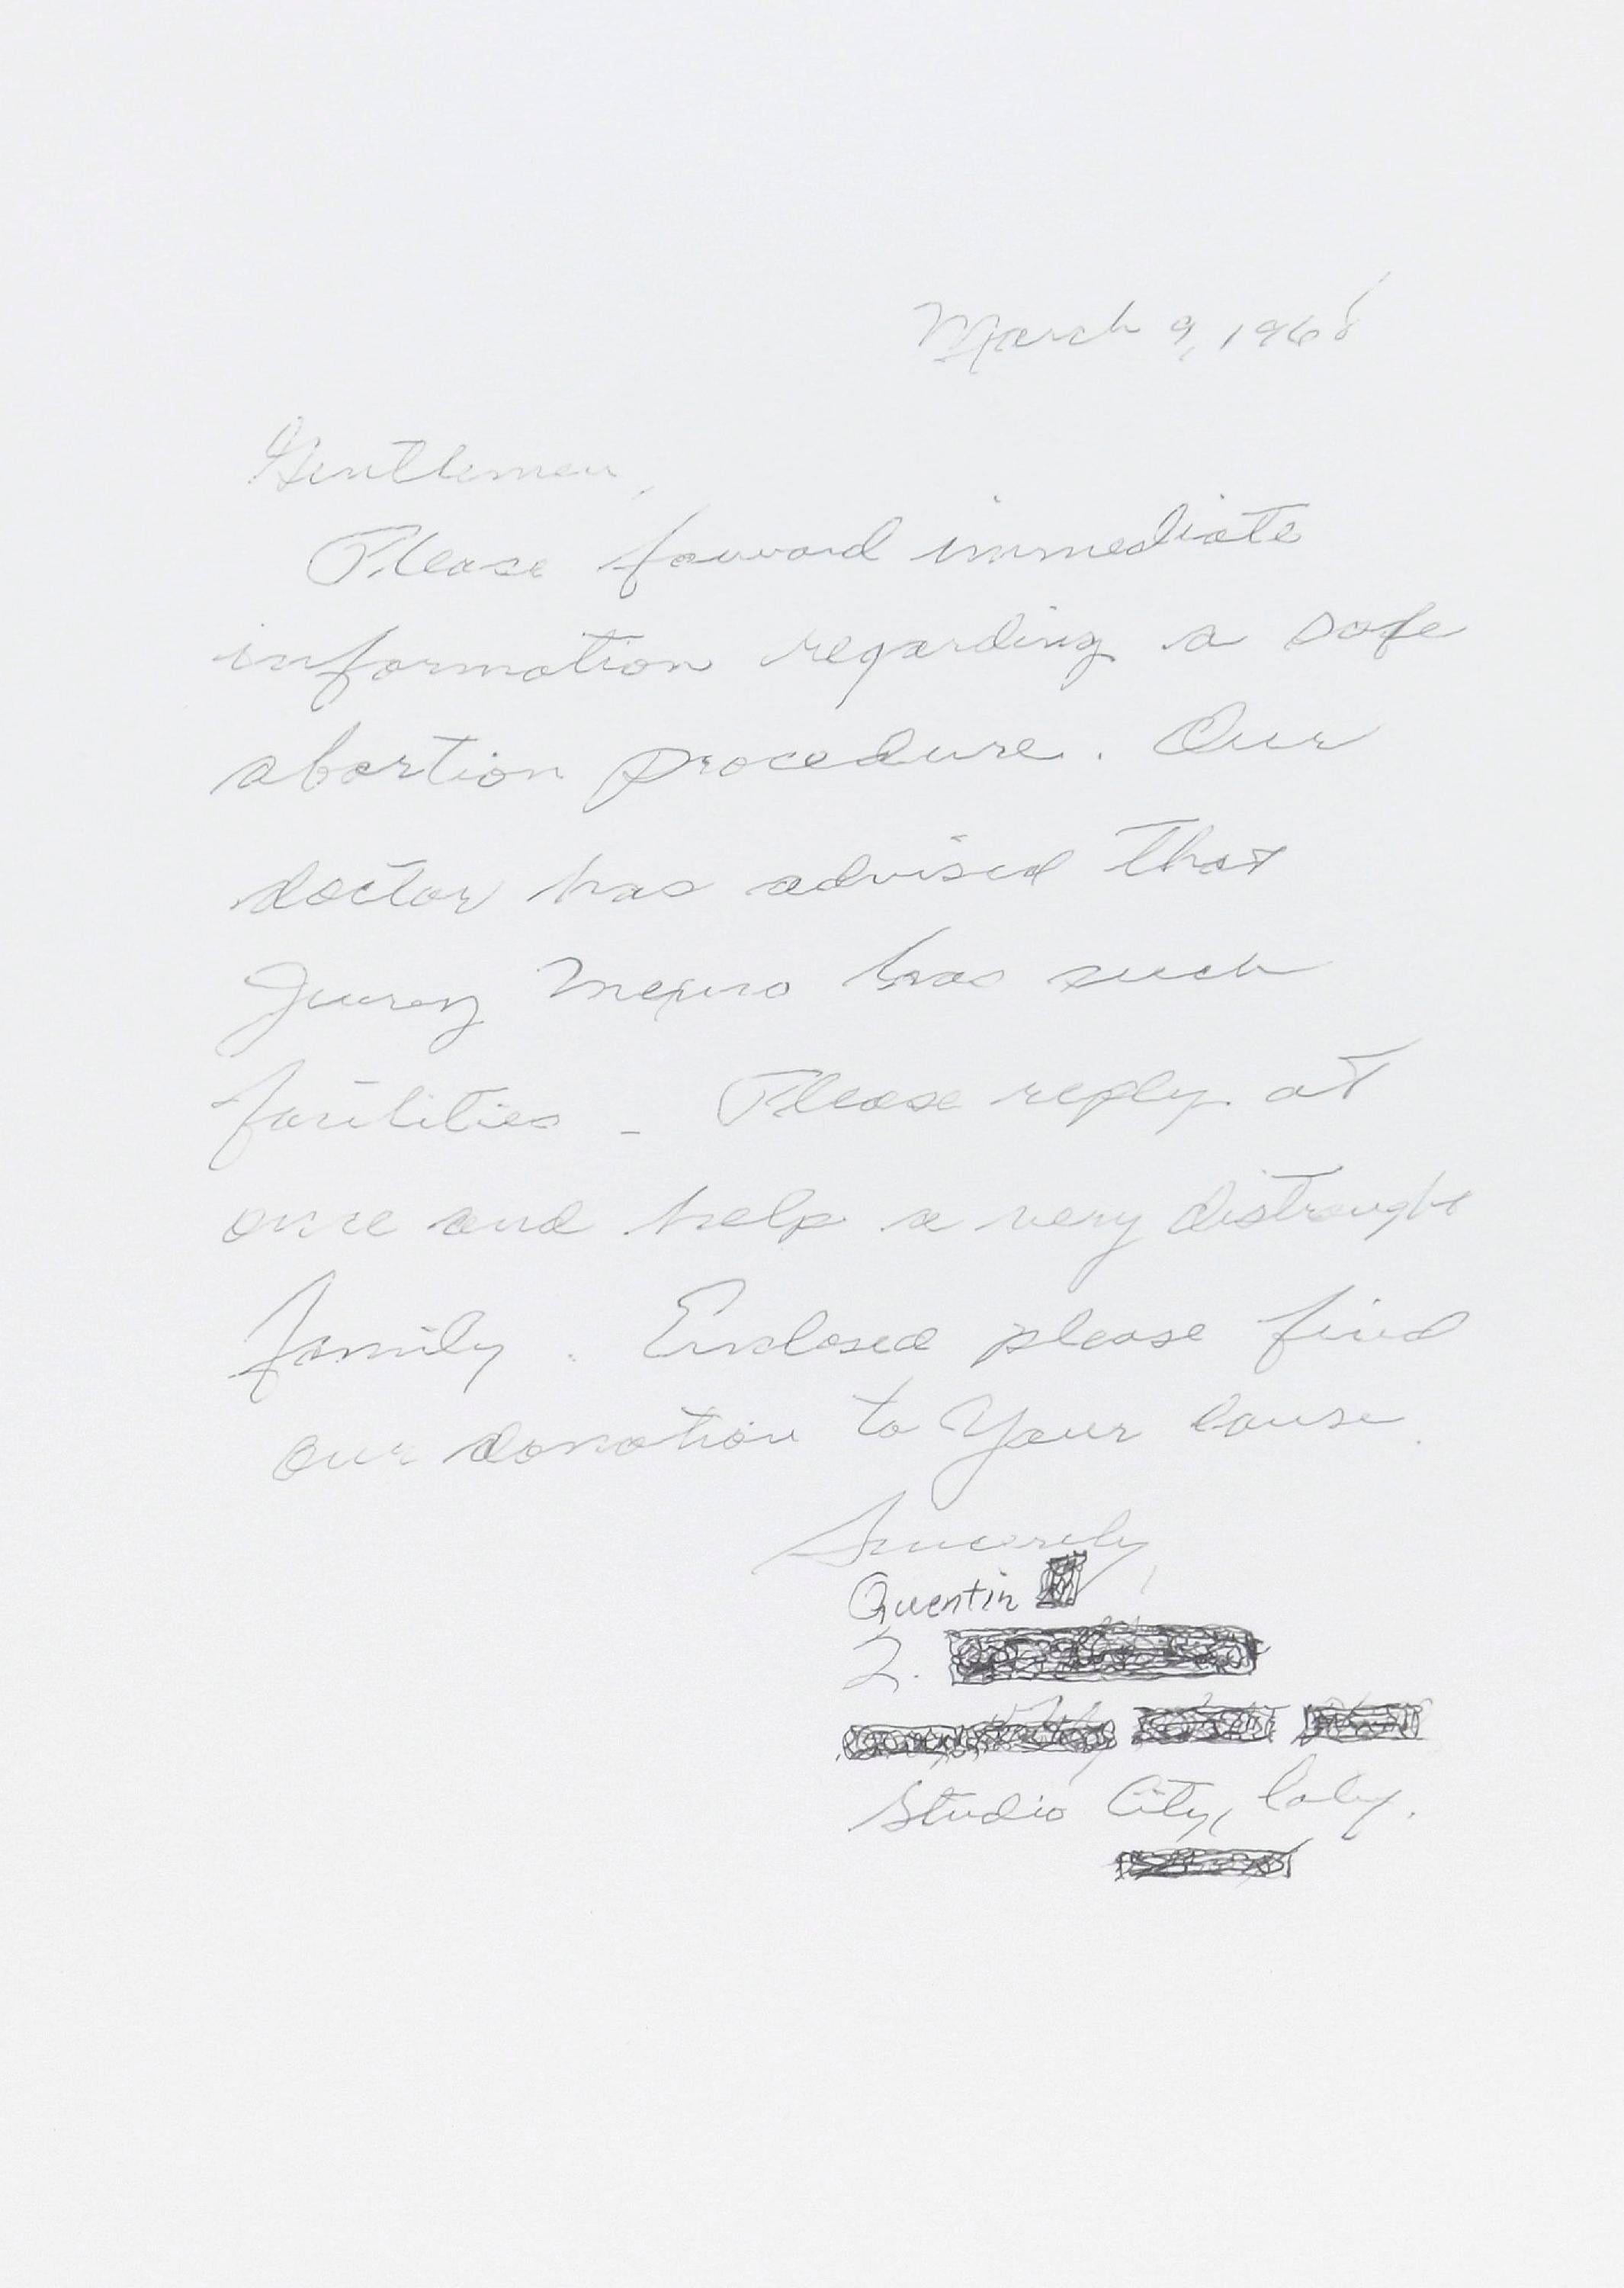 March 9, 1968
Gentlemen,
Please forward immediate
information regarding a safe
abortion procedure. Our
doctor has advised that
Juarez Mexico has such
facilities - Please reply at
once and help a very distraught
family. Enclosed please find
our donation to Your cause.
Sincerely,
Quentin
2.
Studio City, Calif.